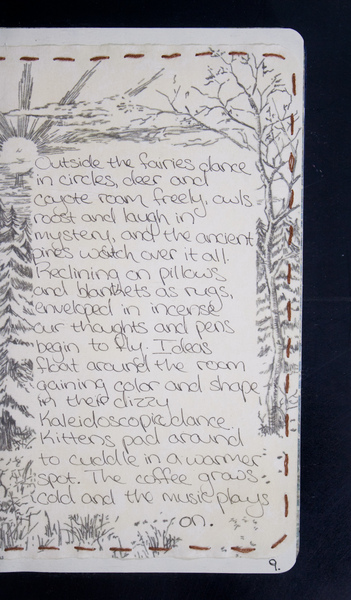 Outside the fairies dance
in circles, deer and
coyote roam freely, owls
roost and laugh in
mystery, and the ancient
pines watch over it all.
Reclining on pillows
and blankets as rugs,
enveloped in incense
our thoughts and pens
begin to fly. Ideas
float around the room
gaining color and shape
in their dizzy
Kaleidoscopic dance.
Kittens pad around
to cuddle in a warmer
spot. The coffee grows
cold and the music plays
on.
9.